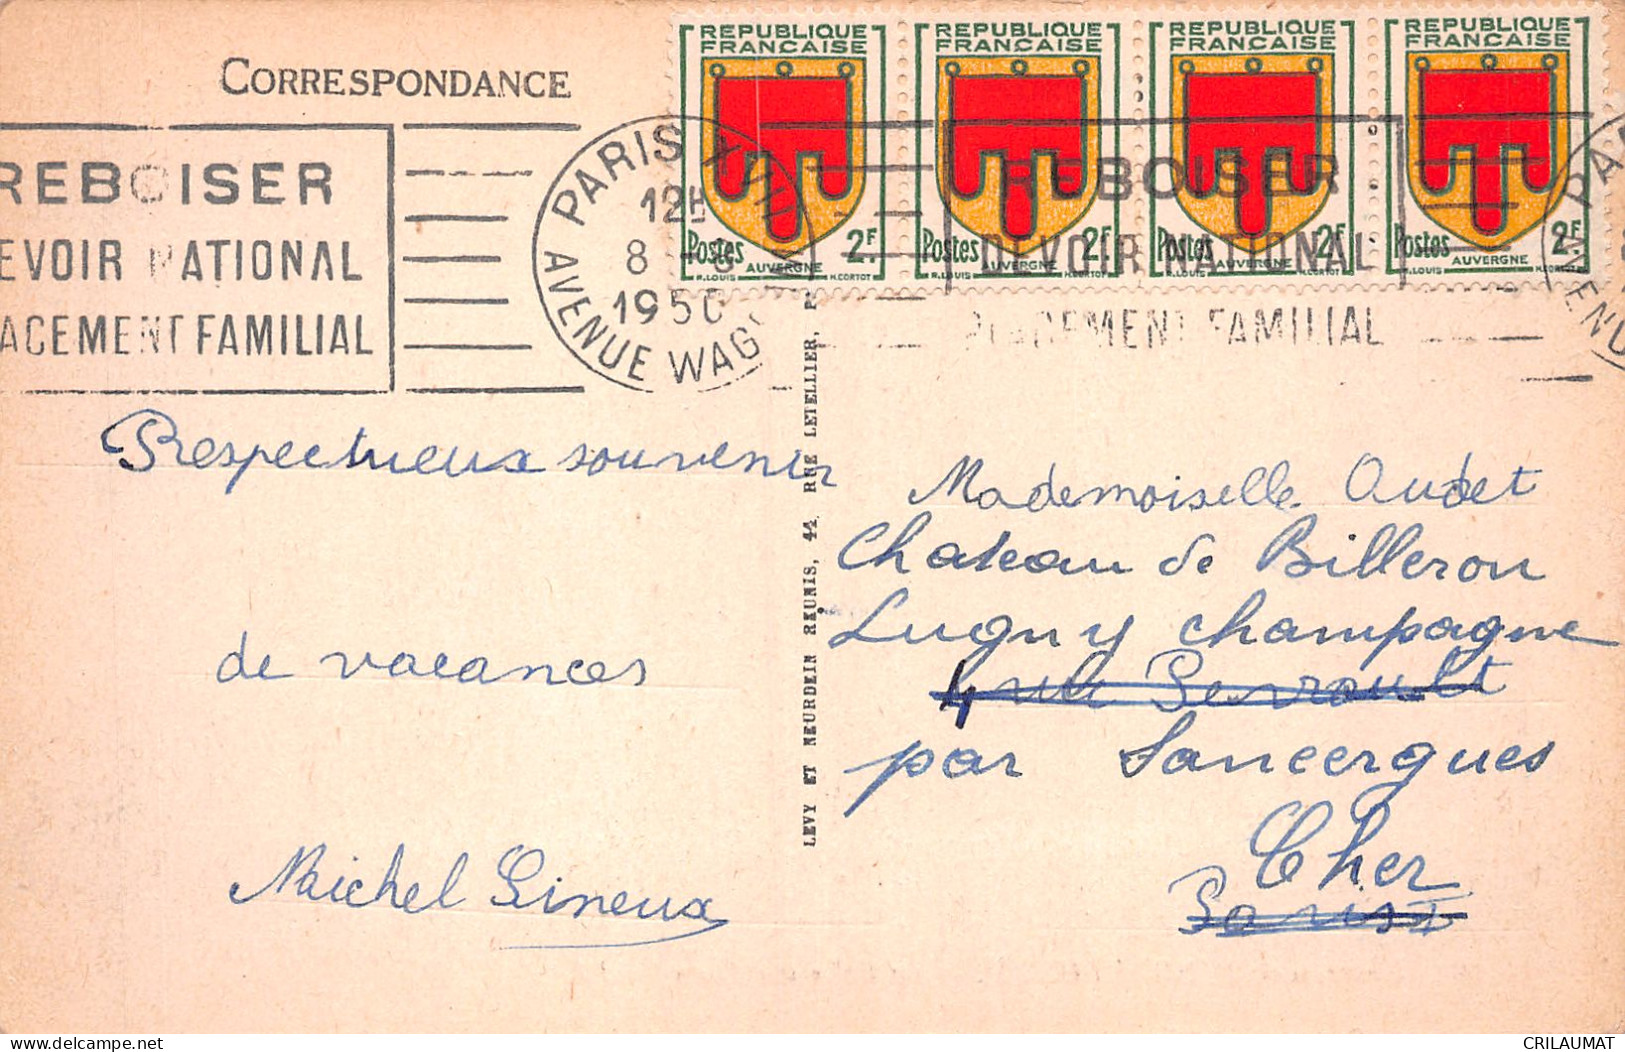 CORRESPONDANCE
REPUBLIQUE FRANCAISE
REPUBLIQUE FRANCAISE
REPUBLIQUE FRANCAISE
REPUBLIQUE FRANCAISE
Postes 2F
AUVERGNE
R.LOUIS H.CORTOT
Postes 2F
AUVERGNE
R.LOUIS H.CORTOT
Postes 2F
AUVERGNE
R.LOUIS H.CORTOT
Postes 2F
AUVERGNE
R.LOUIS H.CORTOT
REBOISER
EVOIR NATIONAL
ACEMENT FAMILIAL
PARIS XVII
12H
8
1950
AVENUE WAG
REBOISER
DEVOIR NATIONAL
PLACEMENT FAMILIAL
Respectueux souvenir
de vacances
Michel Gineux
LEVY ET NEURDEIN RÉUNIS, 44 RUE LETELLIER, P
Mademoiselle Oudet
Chateau de Billeron
Lugny Champagne
4 rue Perrault
par Sancergues
Cher
Paris I
www.delcampe.net
CRILAUMAT